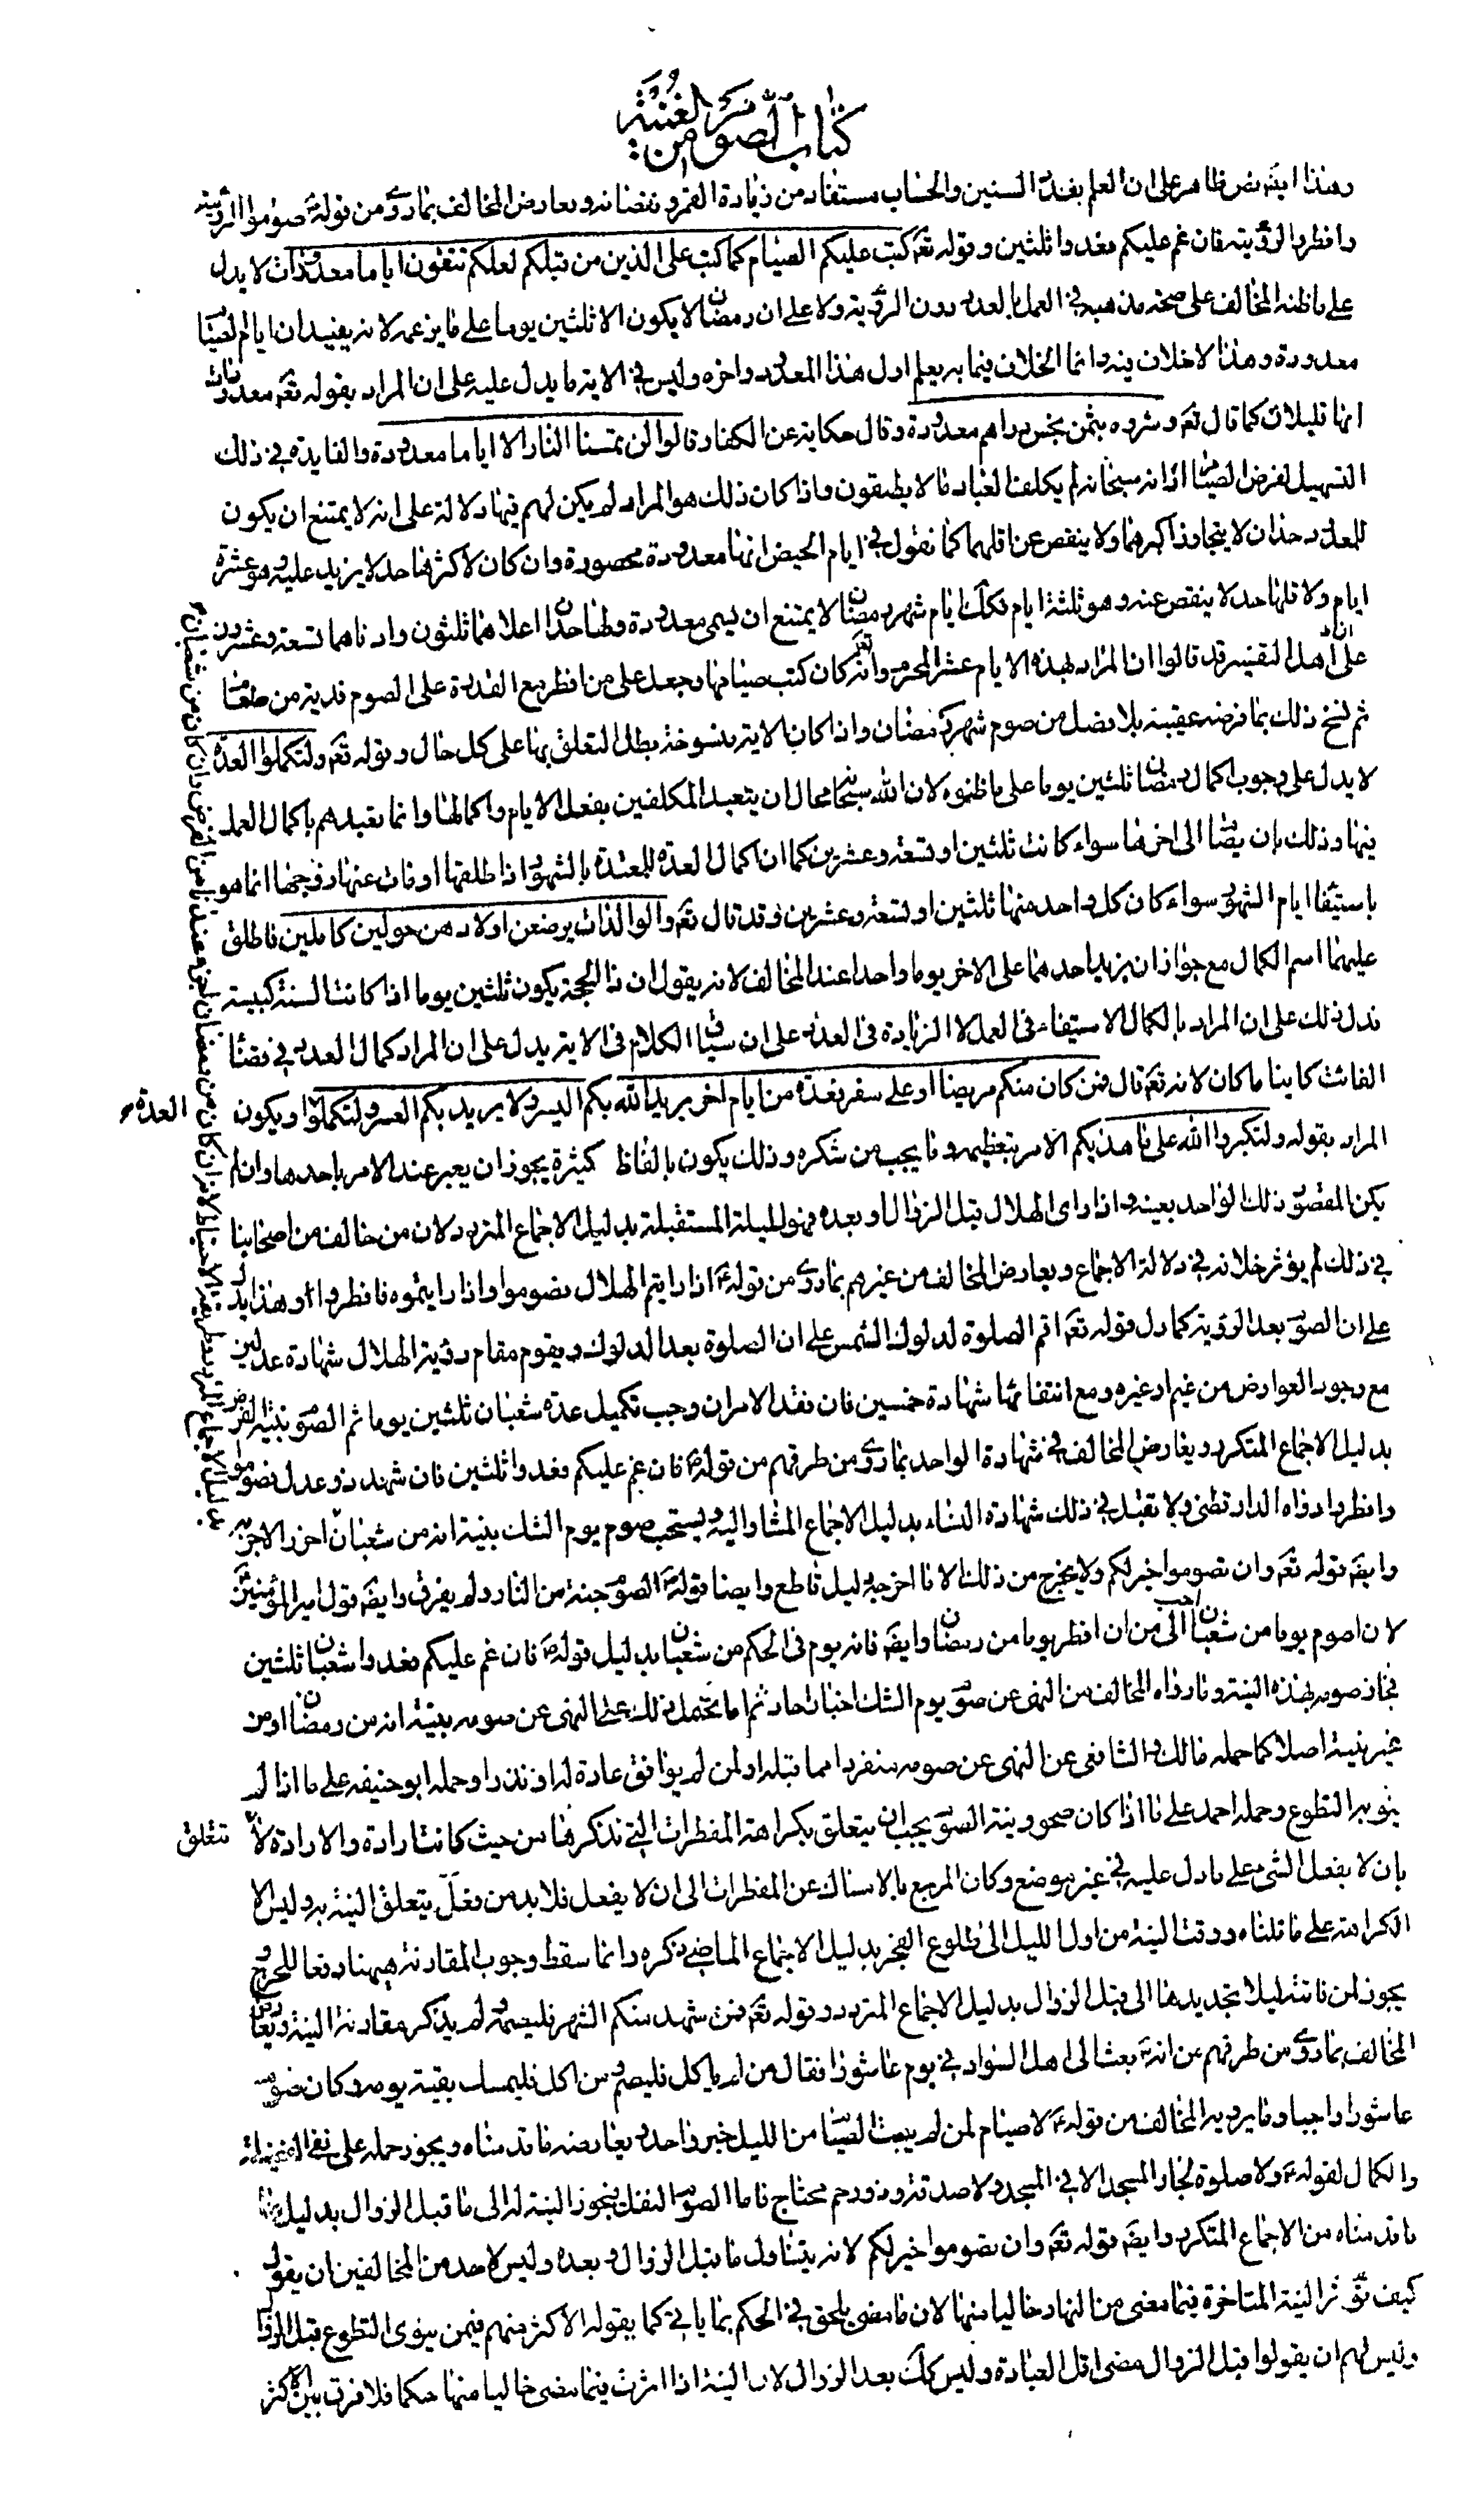 كتاب الصوم من الغنية
وهذا ايضا نص ظاهر على ان العلم بعدد السنين والحساب مستفاد من زيادة القمر ونقصانه ويعارض المخالف بما روى من قوله ع صوموا لرؤيته
وافطروا لرؤيته فان غم عليكم فعدوا ثلثين وقوله تعم كتب عليكم الصيام كما كتب على الذين من قبلكم لعلكم تتقون اياما معدودات لا يدل
على ما ظنه المخالف على صحة مذهبه في العمل بالعدد دون الرؤية ولا على ان رمضان لا يكون الا ثلثين يوما على ما يزعمه لانه يفيد ان ايام الصيام
معدودة وهذا لا خلاف فيه وانما الخلاف فيما به يعلم اول هذا المعدود واخره وليس في الاية ما يدل عليه على ان المراد بقوله تعم معدودات
انها قليلات كما قال تعم وشروه بثمن بخس دراهم معدودة وقال حكاية عن الكفار قالوا لن تمسنا النار الا اياما معدودة والفايدة في ذلك
التسهيل لفرض الصيام اذ انه سبحانه لم يكلف العباد ما لا يطيقون واذا كان ذلك هو المراد لم يكن لهم فيها دلالة على انه لا يمتنع ان يكون
للعدد حدان لا يتجاوز اكبرهما ولا ينقص عن اقلهما كما نقول في ايام الحيض انها معدودة محصورة وان كان لاكثرها حد لا يزيد عليه وهو عشرة
ايام ولاقلها حد لا ينقص عنه وهو ثلثة ايام فكك ايام شهر رمضان لا يمتنع ان يسمى معدودة ولها حدان اعلاهما ثلثون وادناهما تسعة وعشرون
على ان اهل التفسير قد قالوا ان المراد بهذه الايام عشر المحرم وانه تعم كان كتب صيامها وجعل على من افطر مع القدرة على الصوم فدية من طعام
ثم نسخ ذلك بما فرضه عقيبه بلا فصل من صوم شهر رمضان واذا كان الاية منسوخة بطل التعلق بها على كل حال وقوله تعم ولتكملوا العدة
لا يدل على وجوب اكمال رمضان ثلثين يوما على ما ظنوه لان الله سبحانه محال ان يتعبد المكلفين بفعل الايام واكمالها وانما تعبدهم باكمال العمل
فيها وذلك بان يصام الى اخرها سواء كانت ثلثين او تسعة وعشرين كما ان اكمال العدة للمعتدة بالشهور اذا طلقها او مات عنها زوجها انما هو
باستيفا ايام الشهور سواء كان كل واحد منها ثلثين او تسعة وعشرين وقد قال تعم والوالدات يرضعن اولادهن حولين كاملين فاطلق
عليهما اسم الكمال مع جواز ان يزيد احدهما على الاخر يوما واحدا عند المخالف لانه يقول ان ذا الحجة يكون ثلثين يوما اذا كانت السنة كبيسة
فدل ذلك على ان المراد بالكمال الاستيفاء في العمل لا الزيادة في العدد على ان سياق الكلام في الاية يدل على ان المراد كمال العدد في قضاء
الفائت كاينا ما كان لانه تعم قال فمن كان منكم مريضا او على سفر فعدة من ايام اخر يريد الله بكم اليسر ولا يريد بكم العسر ولتكملوا ويكون
العدة
المراد بقوله ولتكبروا الله على ما هديكم الامر بتعظيمه وما يجب من شكره وذلك يكون بالفاظ كثيرة يجوز ان يعبر عند الامر باحدها وان لم
يكن المقصود ذلك الواحد بعينه واذا راى الهلال قبل الزوال او بعده فهو لليلة المستقبلة بدليل الاجماع المتردد لان من خالف من اصحابنا
في ذلك لم يؤثر خلافه في دلالة الاجماع ويعارض المخالف من غيرهم بما روى من قوله ع اذا رايتم الهلال فصوموا واذا رايتموه فافطروا وهذا يدل
على ان الصوم بعد الرؤية كما دل قوله تعم اقم الصلوة لدلوك الشمس على ان الصلوة بعد الدلوك ويقوم مقام رؤية الهلال شهادة عدلين
مع وجود العوارض من غيم او غيره ومع انتفائها شهادة خمسين فان فقد الامران وجب تكميل عدة شعبان ثلثين يوما ثم الصوم بنية الفرض
بدليل الاجماع المتكرر ويعارض المخالف في شهادة الواحد بما روى من طرقهم من قوله ع فان غم عليكم فعدوا ثلثين فان شهد ذو عدل فصوموا
وافطروا رواه الدار قطنى ولا تقبل في ذلك شهادة النساء بدليل الاجماع المشار اليه ويستحب صوم يوم الشك بنية انه من شعبان
وايضا قوله تعم وان تصوموا خير لكم ولا يخرج من ذلك الا ما اخرجه دليل قاطع وايضا قوله ع الصوم جنة من النار ولم يفرق وايضا قول امير المؤمنين ع
لان اصوم يوما من شعبان احب الى من ان افطر يوما من رمضان وايضا فانه يوم في الحكم من شعبان بدليل قوله ع فان غم عليكم فعدوا شعبان ثلثين
فجاز صومه بهذه النية وما رواه المخالف من النهى عن صوم يوم الشك اخبار احاد ثم انا نحمل ذلك على النهى عن صومه بنية انه من رمضان او من
غير نية اصلا كما حمله مالك والشافعى عن النهى عن صومه منفردا مما قبله اولمن لم يوافق عادة له او نذرا وحمله ابو حنيفه على ما اذا لم
ينو به التطوع وحمله احمد على ما اذا كان صحو ونية الصوم يجب ان يتعلق بكراهة المفطرات التي نذكرها من حيث كانت ارادة والارادة لا
تتعلق
بان لا يفعل الشى على ما دل عليه في غير موضع وكان المرجع بالامساك عن المفطرات الى ان لا يفعل فلا بد من فعل يتعلق النية به وليس الا
الكراهة على ما قلناه ووقت النية من اول الليل الى طلوع الفجر بدليل الاجماع الماضى ذكره وانما سقط وجوب المقارنة هيهنا دفعا للحرج
يجوز لمن فاتته ليلا تجديدها الى قبل الزوال بدليل الاجماع المتردد وقوله تعم فمن شهد منكم الشهر فليصمه ولم يذكر مقارنة النية ويعارض
المخالف بما روى من طرقهم من انه ع بعث الى اهل السواد في يوم عاشورا فقال من لم ياكل فليصم ومن اكل فليمسك بقية يومه وكان صوم
عاشورا واجبا وما يرويه المخالف من قوله ع لا صيام لمن لم يبيت الصيام من الليل خبر واحد ويعارضه ما قدمناه ويجوز حمله على نفى الفضيلة
والكمال لقوله ع ولا صلوة لجار المسجد الا في المسجد ولا صدقة وذو رحم محتاج فاما الصوم النفل فيجوز النية له الى ما قبل الزوال بدليل
ما قدمناه من الاجماع المتكرر وايضا قوله تعم وان تصوموا خير لكم لانه يتناول ما قبل الزوال وبعده وليس لاحد من المخالفين ان يقول
كيف تؤثر النية المتاخرة فيما مضى من النهار خاليا منها لان ما مضى يلحق في الحكم بما ياتى كما يقوله الاكثر منهم فيمن ينوى التطوع قبل الزوال
وليس لهم ان يقولوا قبل الزوال مضى اقل العبادة وليس كك بعد الزوال لان النية اذا اثرت فيما مضى خاليا منها حكما فلا فرق بين الاكثر